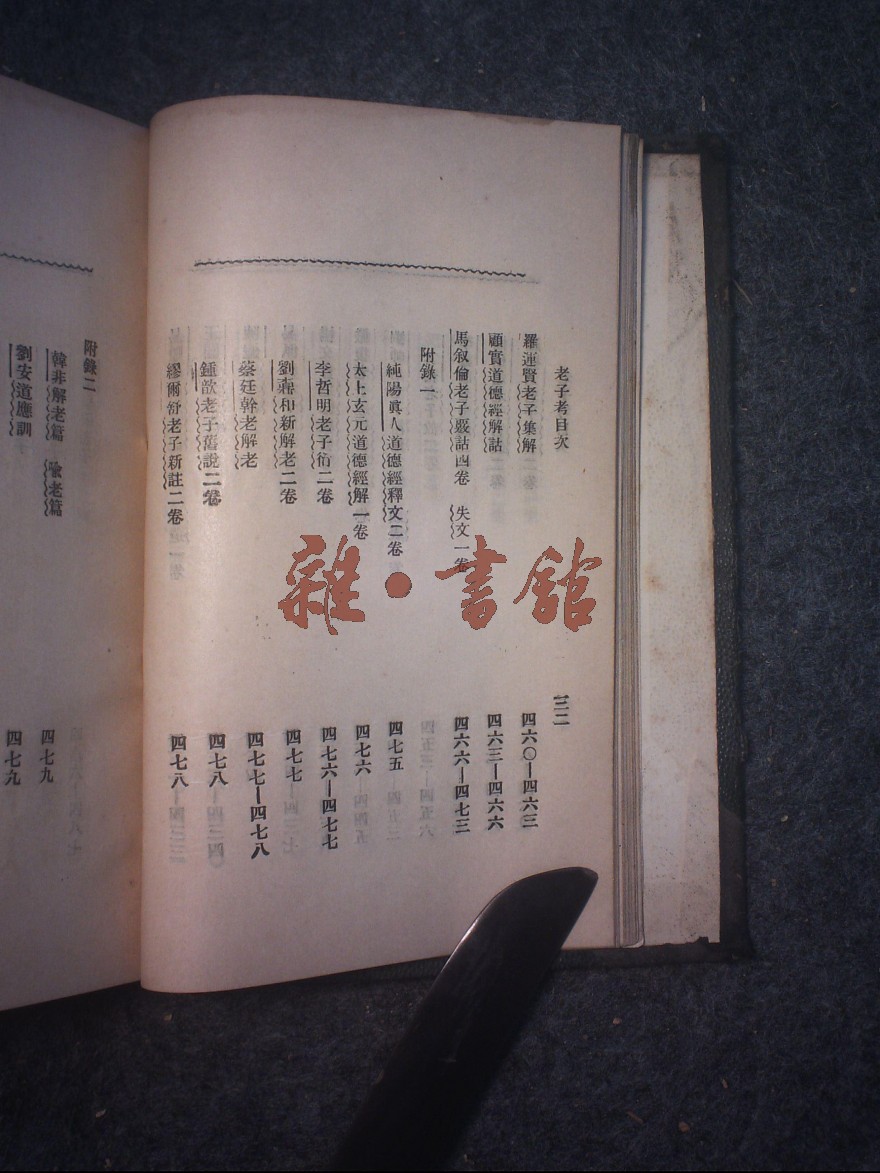 老子考目次
三二
羅運賢老子集解 四六〇—四六三
顧實道德經解詁 四六三—四六六
馬叙倫老子覈詁四卷 失文一卷 四六六—四七三
附錄一
純陽眞人道德經釋文二卷 四七五
太上玄元道德經解一卷 四七六
李哲明老子衍二卷 四七六—四七七
劉鼒和新解老二卷 四七七
蔡廷幹老解老 四七七—四七八
鍾歆老子舊說二卷 四七八
繆爾紓老子新註二卷 四七八
附錄二
韓非解老篇 喩老篇 四七九
劉安道應訓 四七九
雜·書館